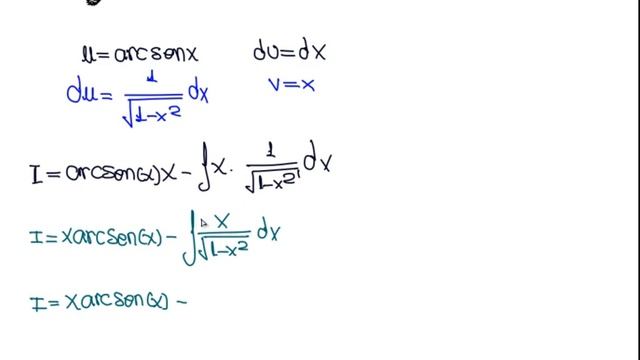 u = arcsenx dv = dx
du = 1/√(1-x²) dx v = x
I = arcsen(x)x - ∫x · 1/√(1-x²) dx
I = xarcsen(x) - ∫ x/√(1-x²) dx
I = xarcsen(x) -